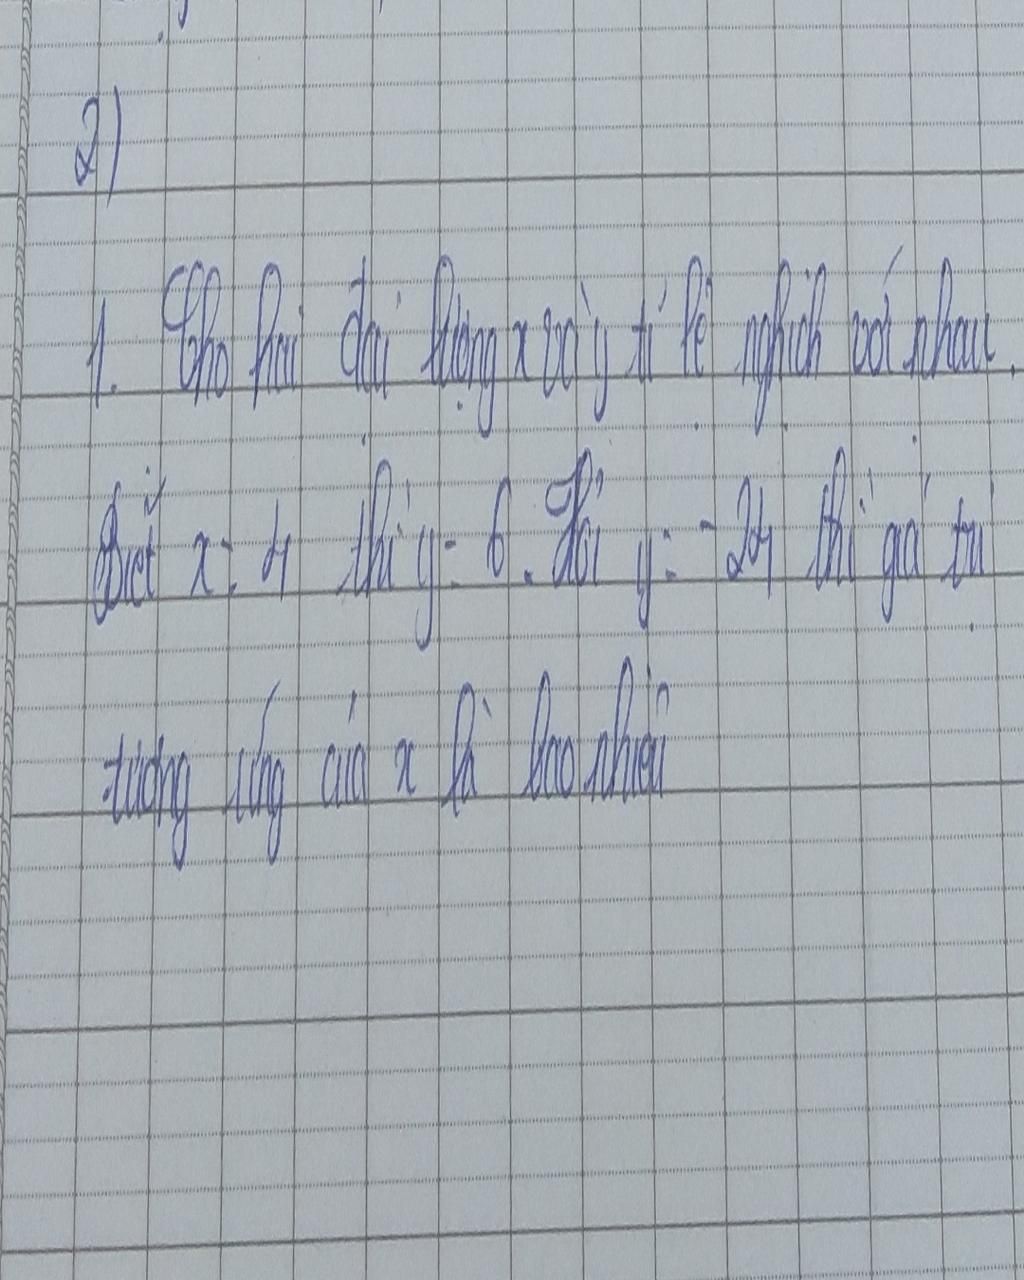 2)
1. Cho hai đại lượng x và y tỉ lệ nghịch với nhau.
Biết x = 4 thì y = 6. Hỏi y = -24 thì giá trị
tương ứng của x là bao nhiêu